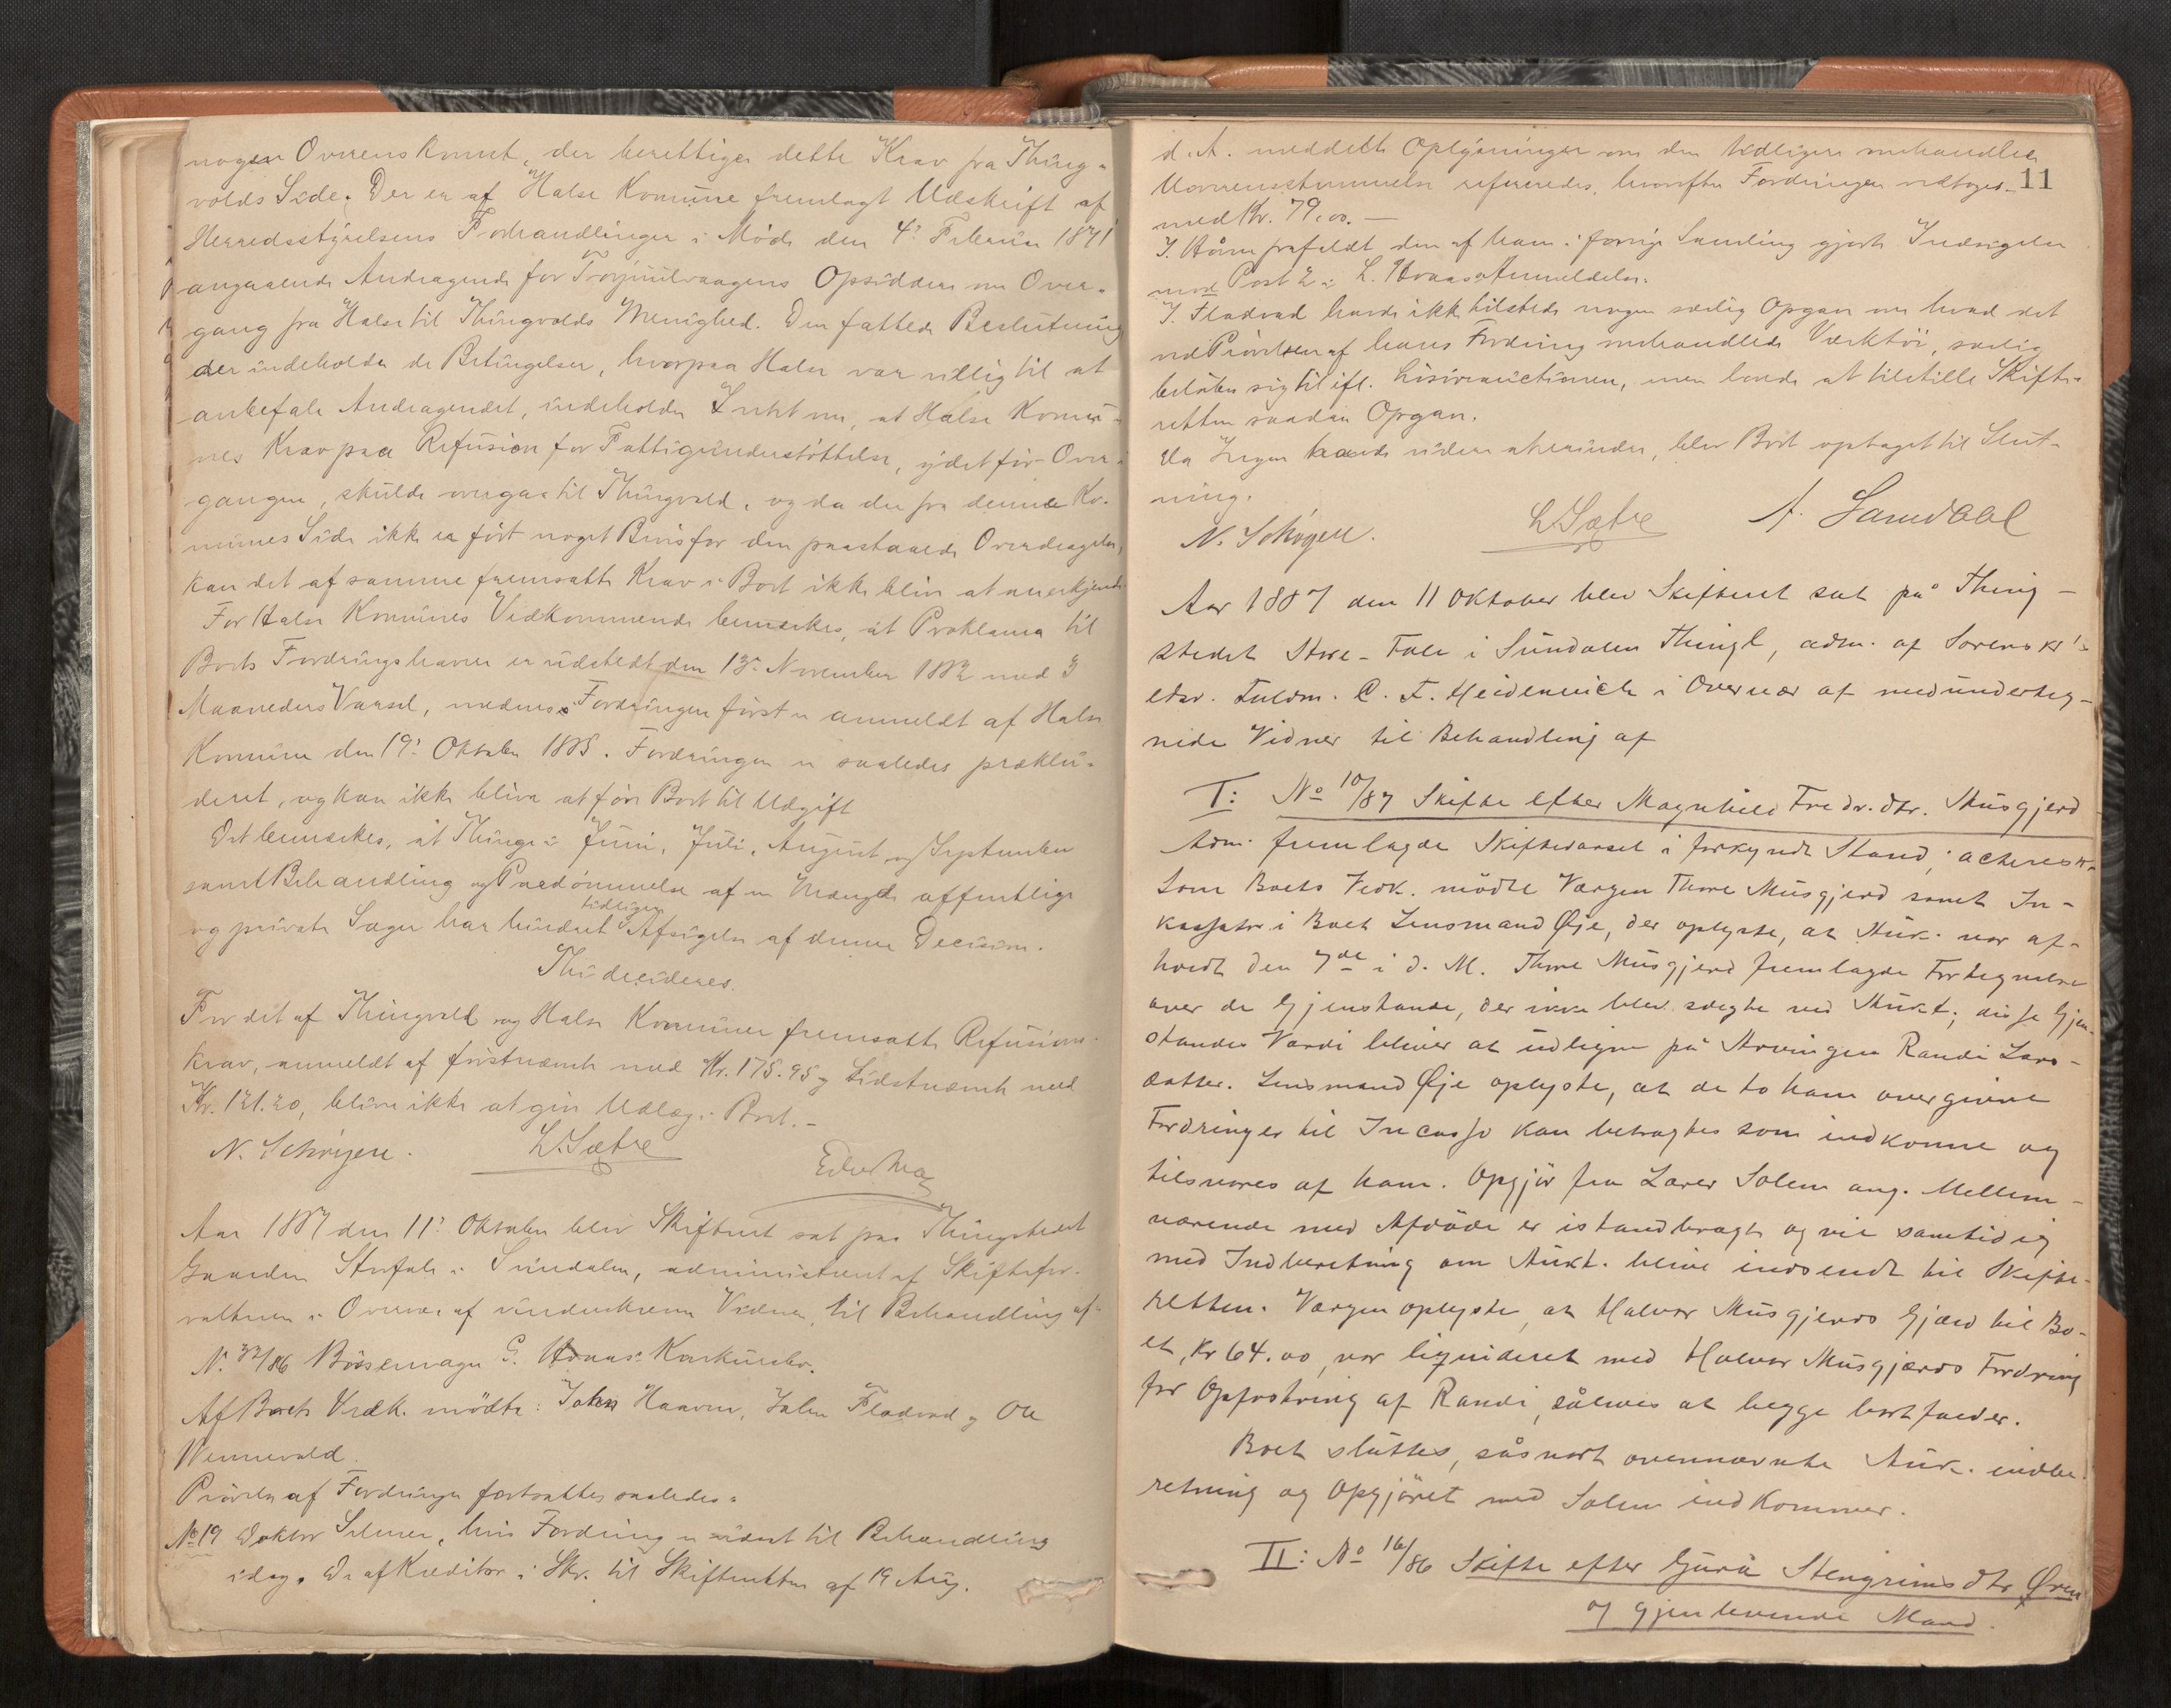 nogen Overenskomst, der berettiger dette Krav fra Thing-
volds Side. Der er af Halse Komune fremlagt Udskrift af
Herredsstyrelsens Forhandlinger i Møde den 4de Februar 1871
angaaende Andragende fra Opsiddere om Over-
gang fra Halse til Thingvolds Menighed. Den fattede Beslutning
der indeholder de Betingelser, hvorpaa Halse var villig til at
anbefale Andragendet, indeholder Intet om, at Halse Komu-
nes Krav paa Refusion for Fattigunderstøttelse, ydet før Over-
gangen, skulde overgaa til Thingvold, og da der fra denne Ko-
munes Side ikke er ført noget Bevis for den paastaaede Overdragelse,
kan det af samme fremsatte Krav i Boet ikke blive at anerkjende
For Halse Komunes Vedkommende bemærkes, at Proklama til
Boets Fordringshavere er udstedt den 13de November 1882 med 3
Maaneders Varsel, medens Fordringen først er anmeldt af Halse
Komune den 19de Oktober 1885. Fordringen er saaledes præklu-
deret, og kan ikke blive at føre Boet til Udgift
Det bemærkes, at Thinge i Juni, Juli, August og September
samt Behandling og Paadømmelse af en Mængde offentlige
og private Sager har hindret tidligere Afsigelse af denne Decision.
Thi decideres.
For det af Thingvold og Halse Komuner fremsatte Refusions-
krav, anmeldt af førstnævnte med Kr. 175.95 og sidstnævnte med
Kr. 121.20, blive ikke at give Udlæg i Boet.-
N. Schrøgen. L. Sætre
Aar 1887 den 11te Oktober blev Skifteret sat paa Thingstedet
Gaarden Storfale i Sundalen, administreret af Skiftefor-
valteren i Overvær af underskrevne Vidner, til Behandling af
N. 32/86 Bøssemager G. Hvaas' Konkursbo.
Af Boets Vedk. mødte: John Haaven, John Fladvad og Ole
Wennevold.
Prøvelse af Fordringer fortsattes saaledes:
No 19 Doktor Selmer, hvis Fordring er udsat til Behandling
idag. Da af Kreditor i Skr. til Skifteretten af 19 Aug.
11
d. A. meddelte Oplysninger om den tidligere omhandlede
Uoverensstemmelse refereredes, hvorefter Fordringen vedtoges
med Kr. 79.00.-
J. Håven frafaldt den af ham i forrige Samling gjorte Indsigelse
mod Post 2 i L. Hvaas Anmeldelse.
J. Fladvad havde ikke tilstede nogen særlig Opgave om hvad det
ved Prøvelsen af hans Fordring omhandlede Værktøi, særlig
beløber sig til ifl. Løsøreauctionen, men lovede at tilstille Skifte-
retten saadan Opgave.
Da Ingen havde videre at erindre, blev Boet optaget til Slut-
ning.
N. Schrøgen. L. Sætre
Aar 1887 den 11 Oktober blev Skifteret sat på Thing-
stedet Store-Fale i Sundalen Thingl, adm. af Sorenskr's
edsv. Fuldm. C. F. Heidenreich i Overvær af medunderteg-
nede Vidner til Behandling af
I: No 10/87 Skifte efter Magnhild Fredr.dtr. Musgjerd
Adm. fremlagde Skiftevarsel i forkyndt Stand; acteres
Som Boets Vedk. mødte Værgen Thore Musgjerd samt In-
kassator i Boet Lensmand Øje, der oplyste, at Auk. var af-
holdt den 7de i d. M. Thore Musgjerd fremlagde Fortegnelse
over de Gjenstande, der ikke blev solgte ved Aukt; disse Gjen-
standes Værdi bliver at udligne på Arvingen Randi Lars-
datter. Lensmand Øje oplyste, at de to ham overgivne
Fordringer til Incasso kan betragtes som indkomne og
tilsvares af ham. Opgjør fra Lærer Solem ang. Mellem-
værende med Afdøde er istandbragt og vil samtidig
med Indberetning om Aukt. blive indsendt til Skifte-
retten. Værgen oplyste, at Halvor Musgjerds Gjæld til Bo-
et, Kr 64.00, var liquideret med Halvor Musgjerds Fordring
for Opfostring af Randi, således at begge bortfalder.
Boet sluttes, såsnart ovennævnte Auk. indbe-
retning og Opgjøret med Solem indkommer.
II: No 16/86 Skifte efter Guru Stengrimsdtr Øren
og gjenlevende Mand.